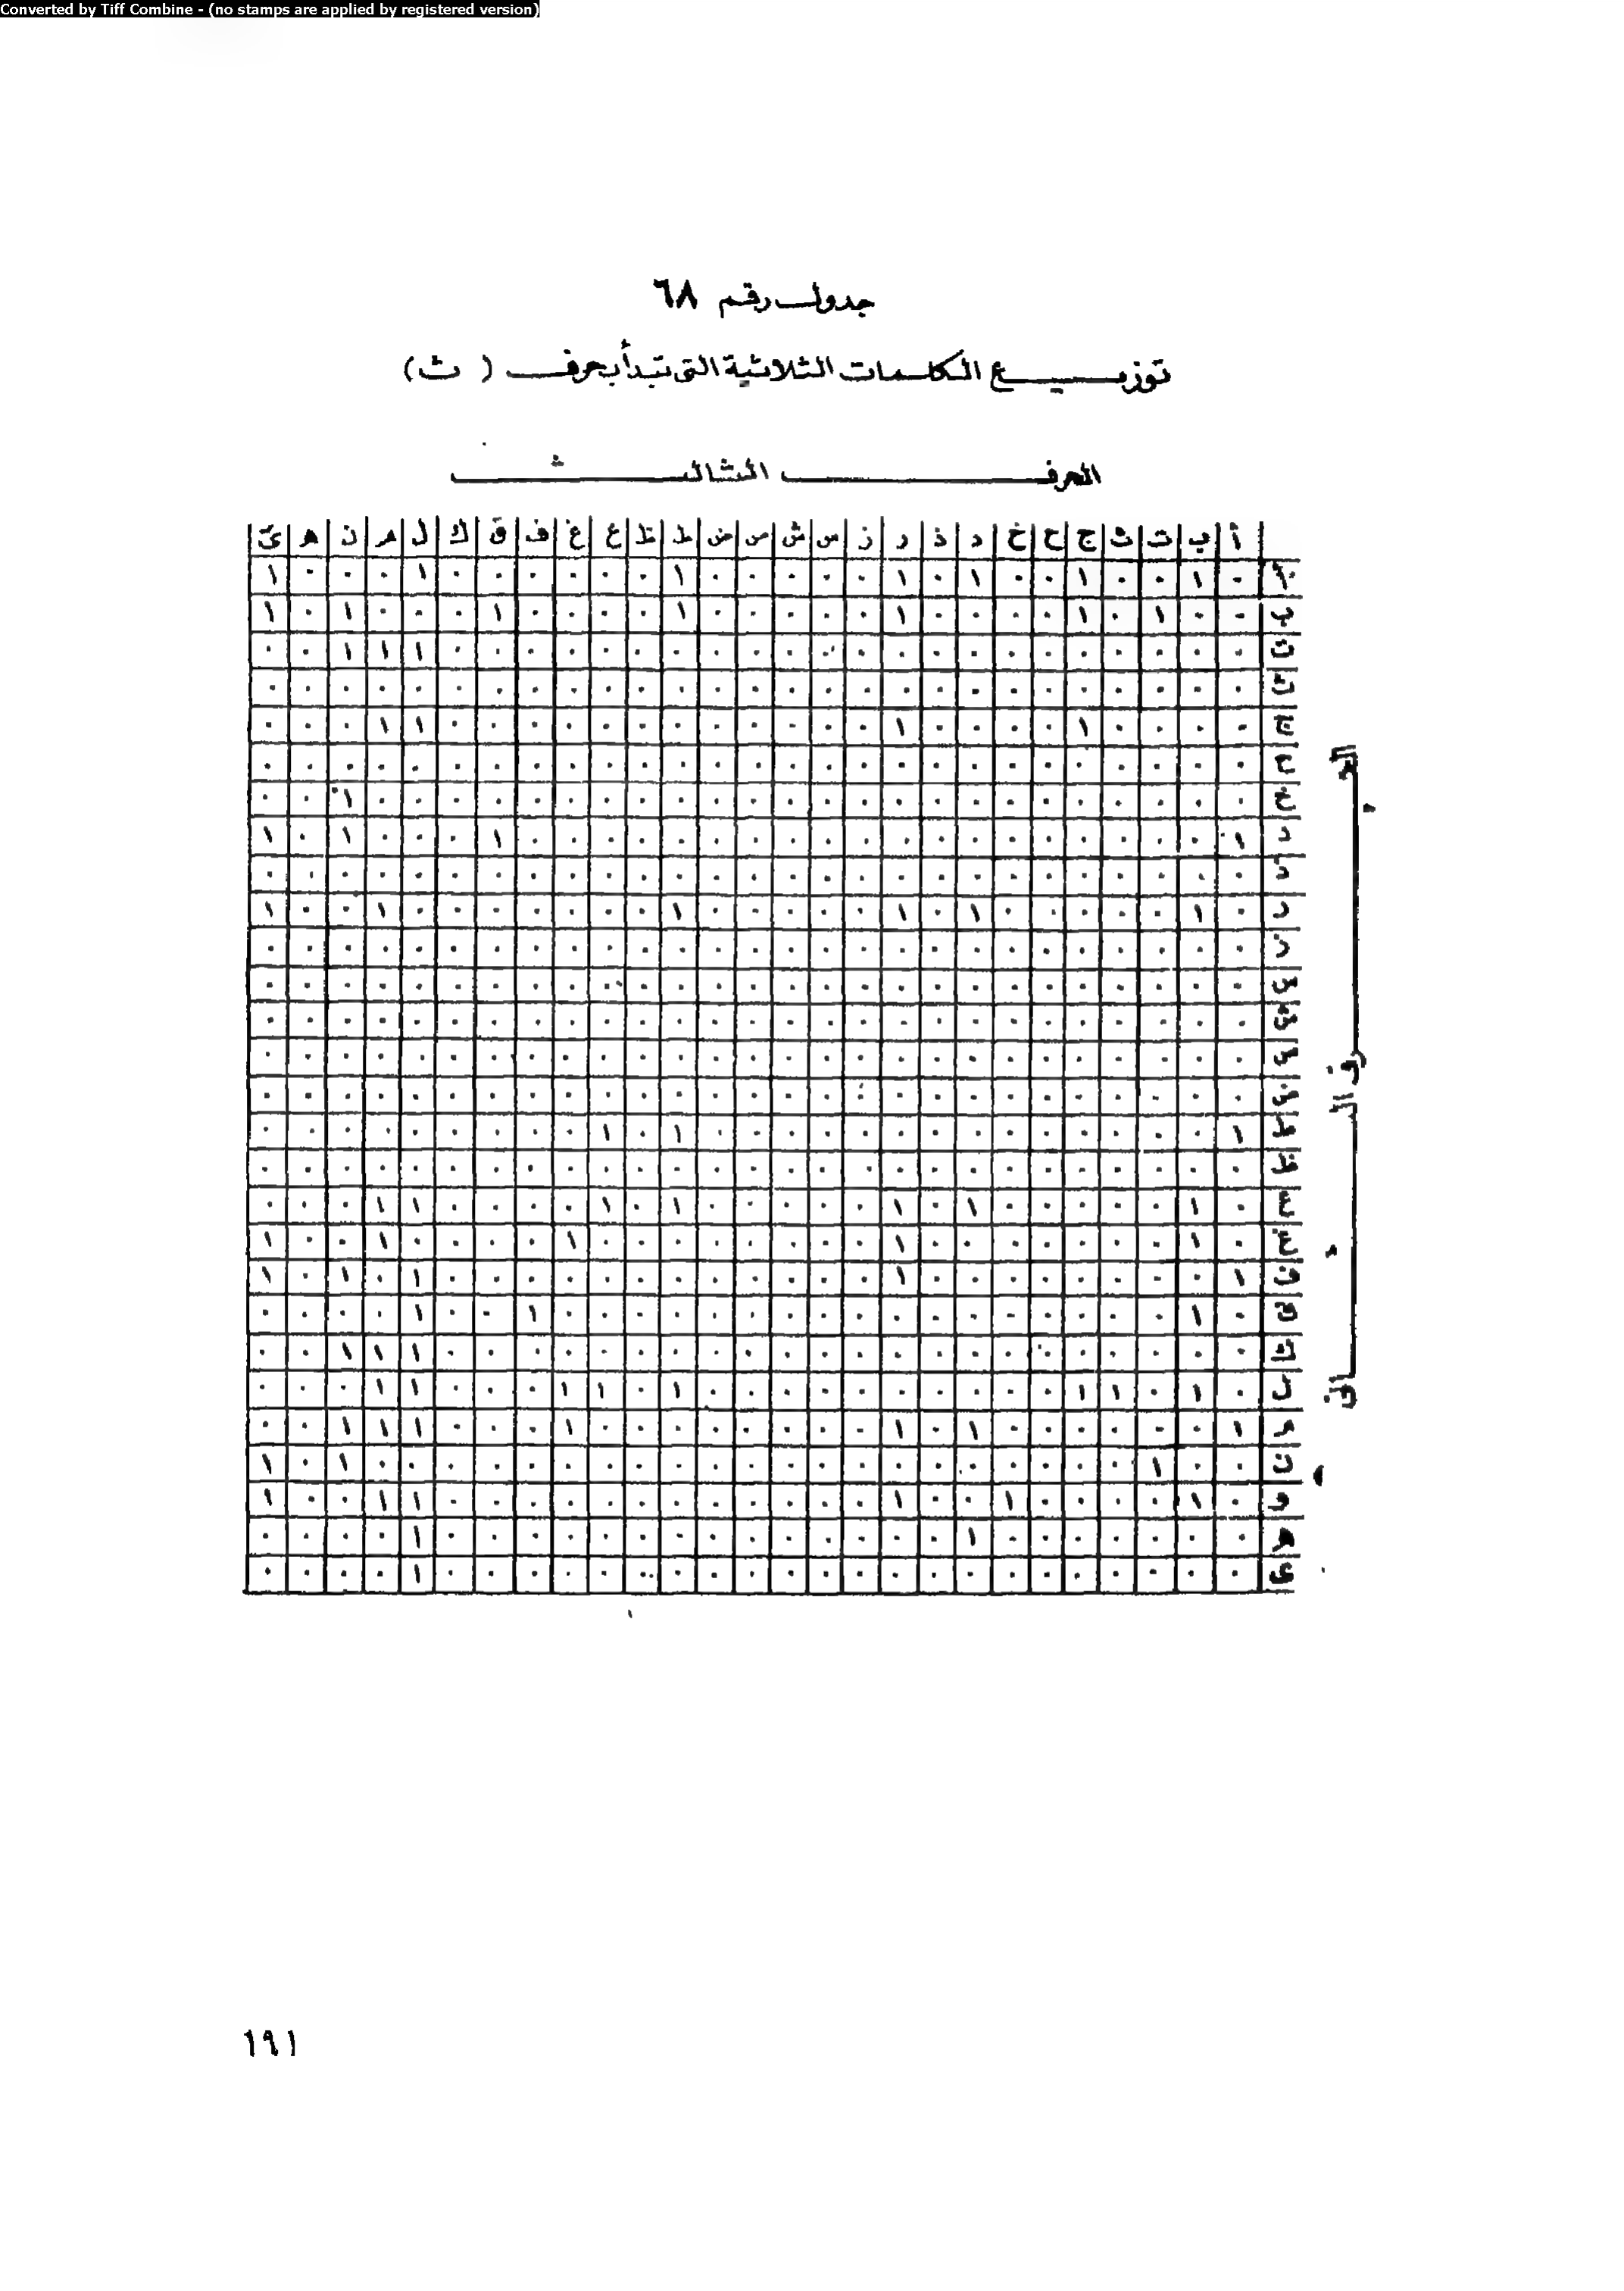 Converted by Tiff Combine - (no stamps are applied by registered version)
جدول رقم ٦٨
توزيع الكلمات الثلاثية التى تبدأ بحرف ( ث )
الحرف الثالث
أ ب ت ث ج ح خ د ذ ر ز س ش ص ض ط ظ ع غ ف ق ك ل م ن ه ى
أ ٠ ١ ٠ ٠ ١ ٠ ٠ ١ ٠ ١ ٠ ٠ ٠ ٠ ٠ ١ ٠ ٠ ٠ ٠ ٠ ٠ ١ ٠ ٠ ٠ ١
ب ٠ ٠ ١ ٠ ١ ٠ ٠ ٠ ٠ ١ ٠ ٠ ٠ ٠ ٠ ١ ٠ ٠ ٠ ٠ ١ ٠ ٠ ٠ ١ ٠ ١
ت ٠ ٠ ٠ ٠ ٠ ٠ ٠ ٠ ٠ ٠ ٠ ٠ ٠ ٠ ٠ ٠ ٠ ٠ ٠ ٠ ٠ ٠ ١ ١ ١ ٠ ٠
ث ٠ ٠ ٠ ٠ ٠ ٠ ٠ ٠ ٠ ٠ ٠ ٠ ٠ ٠ ٠ ٠ ٠ ٠ ٠ ٠ ٠ ٠ ٠ ٠ ٠ ٠ ٠
ج ٠ ٠ ٠ ٠ ١ ٠ ٠ ٠ ٠ ١ ٠ ٠ ٠ ٠ ٠ ٠ ٠ ٠ ٠ ٠ ٠ ٠ ١ ١ ٠ ٠ ٠
ح ٠ ٠ ٠ ٠ ٠ ٠ ٠ ٠ ٠ ٠ ٠ ٠ ٠ ٠ ٠ ٠ ٠ ٠ ٠ ٠ ٠ ٠ ٠ ٠ ٠ ٠ ٠
خ ٠ ٠ ٠ ٠ ٠ ٠ ٠ ٠ ٠ ٠ ٠ ٠ ٠ ٠ ٠ ٠ ٠ ٠ ٠ ٠ ٠ ٠ ٠ ٠ ١ ٠ ٠
د ١ ٠ ٠ ٠ ٠ ٠ ٠ ٠ ٠ ٠ ٠ ٠ ٠ ٠ ٠ ٠ ٠ ٠ ٠ ٠ ١ ٠ ٠ ٠ ١ ٠ ١
ذ ٠ ٠ ٠ ٠ ٠ ٠ ٠ ٠ ٠ ٠ ٠ ٠ ٠ ٠ ٠ ٠ ٠ ٠ ٠ ٠ ٠ ٠ ٠ ٠ ٠ ٠ ٠
ر ٠ ١ ٠ ٠ ٠ ٠ ٠ ١ ٠ ١ ٠ ٠ ٠ ٠ ٠ ١ ٠ ٠ ٠ ٠ ٠ ٠ ٠ ١ ٠ ٠ ١
ز ٠ ٠ ٠ ٠ ٠ ٠ ٠ ٠ ٠ ٠ ٠ ٠ ٠ ٠ ٠ ٠ ٠ ٠ ٠ ٠ ٠ ٠ ٠ ٠ ٠ ٠ ٠
س ٠ ٠ ٠ ٠ ٠ ٠ ٠ ٠ ٠ ٠ ٠ ٠ ٠ ٠ ٠ ٠ ٠ ٠ ٠ ٠ ٠ ٠ ٠ ٠ ٠ ٠ ٠
ش ٠ ٠ ٠ ٠ ٠ ٠ ٠ ٠ ٠ ٠ ٠ ٠ ٠ ٠ ٠ ٠ ٠ ٠ ٠ ٠ ٠ ٠ ٠ ٠ ٠ ٠ ٠
ص ٠ ٠ ٠ ٠ ٠ ٠ ٠ ٠ ٠ ٠ ٠ ٠ ٠ ٠ ٠ ٠ ٠ ٠ ٠ ٠ ٠ ٠ ٠ ٠ ٠ ٠ ٠
ض ٠ ٠ ٠ ٠ ٠ ٠ ٠ ٠ ٠ ٠ ٠ ٠ ٠ ٠ ٠ ٠ ٠ ٠ ٠ ٠ ٠ ٠ ٠ ٠ ٠ ٠ ٠
ط ١ ٠ ٠ ٠ ٠ ٠ ٠ ٠ ٠ ٠ ٠ ٠ ٠ ٠ ٠ ١ ٠ ١ ٠ ٠ ٠ ٠ ٠ ٠ ٠ ٠ ٠
ظ ٠ ٠ ٠ ٠ ٠ ٠ ٠ ٠ ٠ ٠ ٠ ٠ ٠ ٠ ٠ ٠ ٠ ٠ ٠ ٠ ٠ ٠ ٠ ٠ ٠ ٠ ٠
ع ٠ ١ ٠ ٠ ٠ ٠ ٠ ١ ٠ ١ ٠ ٠ ٠ ٠ ٠ ١ ٠ ١ ٠ ٠ ٠ ٠ ١ ١ ٠ ٠ ٠
غ ٠ ١ ٠ ٠ ٠ ٠ ٠ ٠ ٠ ١ ٠ ٠ ٠ ٠ ٠ ٠ ٠ ٠ ١ ٠ ٠ ٠ ٠ ١ ٠ ٠ ١
ف ١ ٠ ٠ ٠ ٠ ٠ ٠ ٠ ٠ ١ ٠ ٠ ٠ ٠ ٠ ٠ ٠ ٠ ٠ ٠ ٠ ٠ ١ ٠ ١ ٠ ١
ق ٠ ١ ٠ ٠ ٠ ٠ ٠ ٠ ٠ ٠ ٠ ٠ ٠ ٠ ٠ ٠ ٠ ٠ ٠ ١ ٠ ٠ ١ ٠ ٠ ٠ ٠
ك ٠ ٠ ٠ ٠ ٠ ٠ ٠ ٠ ٠ ٠ ٠ ٠ ٠ ٠ ٠ ٠ ٠ ٠ ٠ ٠ ٠ ٠ ١ ١ ١ ٠ ٠
ل ٠ ١ ٠ ١ ١ ٠ ٠ ٠ ٠ ٠ ٠ ٠ ٠ ٠ ٠ ١ ٠ ١ ١ ٠ ٠ ٠ ١ ١ ٠ ٠ ٠
م ١ ٠ ٠ ٠ ٠ ٠ ٠ ١ ٠ ١ ٠ ٠ ٠ ٠ ٠ ٠ ٠ ٠ ١ ٠ ٠ ٠ ١ ١ ١ ٠ ٠
ن ٠ ٠ ١ ٠ ٠ ٠ ٠ ٠ ٠ ٠ ٠ ٠ ٠ ٠ ٠ ٠ ٠ ٠ ٠ ٠ ٠ ٠ ٠ ٠ ١ ٠ ١
و ٠ ١ ٠ ٠ ٠ ٠ ١ ٠ ٠ ١ ٠ ٠ ٠ ٠ ٠ ٠ ٠ ٠ ٠ ٠ ٠ ٠ ١ ١ ٠ ٠ ١
ه ٠ ٠ ٠ ٠ ٠ ٠ ٠ ١ ٠ ٠ ٠ ٠ ٠ ٠ ٠ ٠ ٠ ٠ ٠ ٠ ٠ ٠ ١ ٠ ٠ ٠ ٠
ى ٠ ٠ ٠ ٠ ٠ ٠ ٠ ٠ ٠ ٠ ٠ ٠ ٠ ٠ ٠ ٠ ٠ ٠ ٠ ٠ ٠ ٠ ١ ٠ ٠ ٠ ٠
الحرف الثانى
١٩١